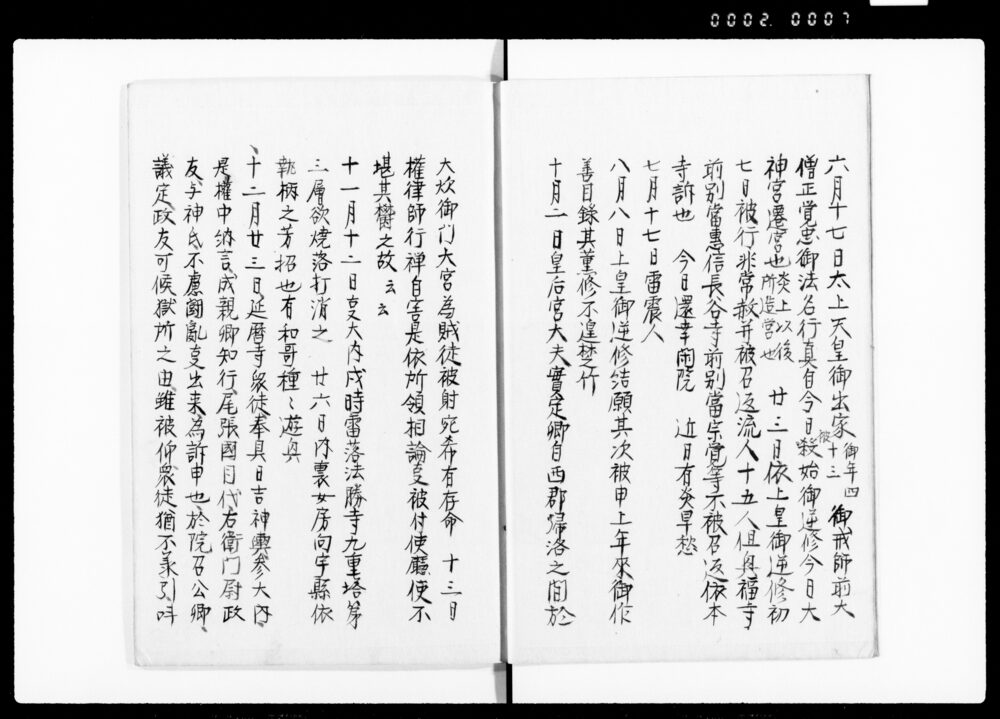 0002.0007
六月十七日太上天皇御出家御年四十三御戒師前大
僧正覚忠御法名行真自今日被始御逆修今日大
神宮遷宮也炎上以後所造営也 廿三日依上皇御逆修初
七日被行非常赦并被召返流人十五人但興福寺
前別當惠信長谷寺前別當宗覚等不被召返依本
寺訴也 今日還幸閑院 近日有炎旱愁
七月十七日雷震人
八月八日上皇御逆修結願其次被申上年来御作
善目録其薫修不遑楚竹
十月二日皇后宮大夫實定卿自西郡帰洛之間於
大炊御門大宮為賊徒被射宛希有存命 十三日
權律師行禅自害是依所領相論事被付使廳使不
堪其欝之故云云
十一月十二日亥大内戌時雷落法勝寺九重塔第
三層欲焼落打消之 廿六日内裏女房向宇縣依
執柄之芳招也有和哥種々遊興
十二月廿三日延暦寺衆徒奉具日吉神輿参大内
是權中納言成親卿知行尾張國目代右衛門尉政
友与神民不慮闘亂事出来為訴申也於院召公卿
議定政友可候獄所之由雖被仰衆徒猶不承引叫